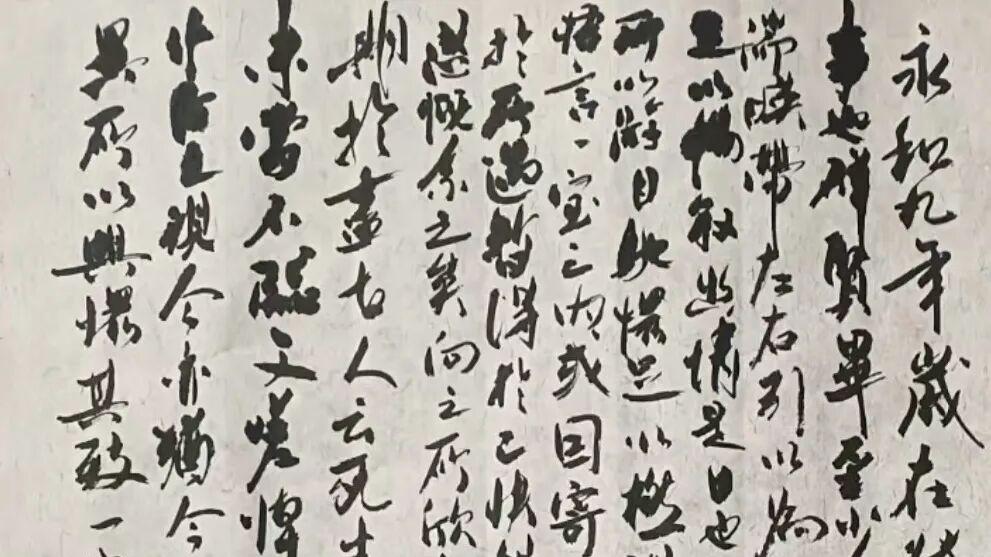 永和九年歲在
事也群賢畢至少
湍暎帶左右引以為
足以暢敘幽情是日也
所以游目騁懷足以極
悟言一室之內或因寄
於所遇暫得於己快然
感慨係之矣向之所欣
期於盡古人云死生
未嘗不臨文嗟悼
之視今亦猶今
異所以興懷其致一